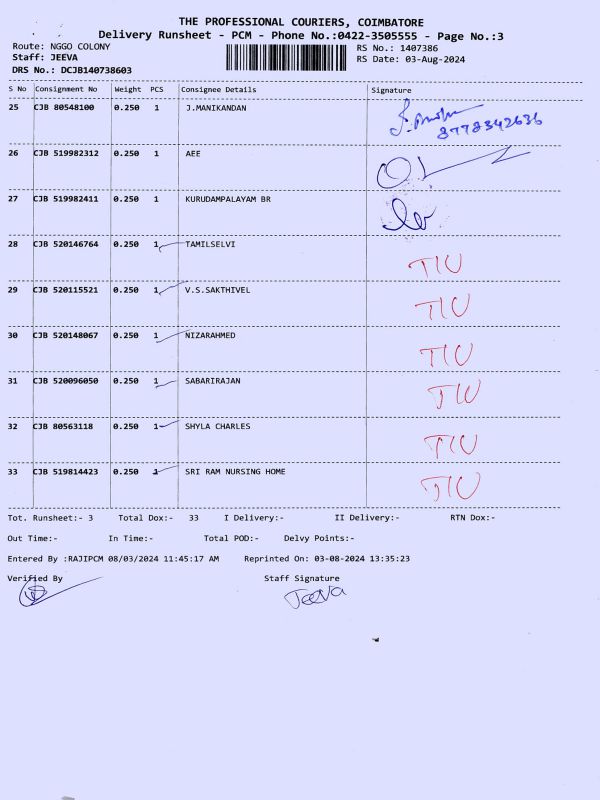 THE PROFESSIONAL COURIERS, COIMBATORE
Delivery Runsheet - PCM - Phone No.:0422-3505555 - Page No.:3
Route: NGGO COLONY RS No.: 1407386
Staff: JEEVA RS Date: 03-Aug-2024
DRS No.: DCJB140738603
S No Consignment No Weight PCS Consignee Details Signature
25 CJB 80548100 0.250 1 J.MANIKANDAN
8778342636
26 CJB 519982312 0.250 1 AEE
27 CJB 519982411 0.250 1 KURUDAMPALAYAM BR
28 CJB 520146764 0.250 1 TAMILSELVI
TIU
29 CJB 520115521 0.250 1 V.S.SAKTHIVEL
TIU
30 CJB 520148067 0.250 1 NIZARAHMED
TIU
31 CJB 520096050 0.250 1 SABARIRAJAN
TIU
32 CJB 80563118 0.250 1 SHYLA CHARLES
TIU
33 CJB 519814423 0.250 1 SRI RAM NURSING HOME
TIU
Tot. Runsheet:- 3 Total Dox:- 33 I Delivery:- II Delivery:- RTN Dox:-
Out Time:- In Time:- Total POD:- Delvy Points:-
Entered By :RAJIPCM 08/03/2024 11:45:17 AM Reprinted On: 03-08-2024 13:35:23
Verified By Staff Signature
Jeeva